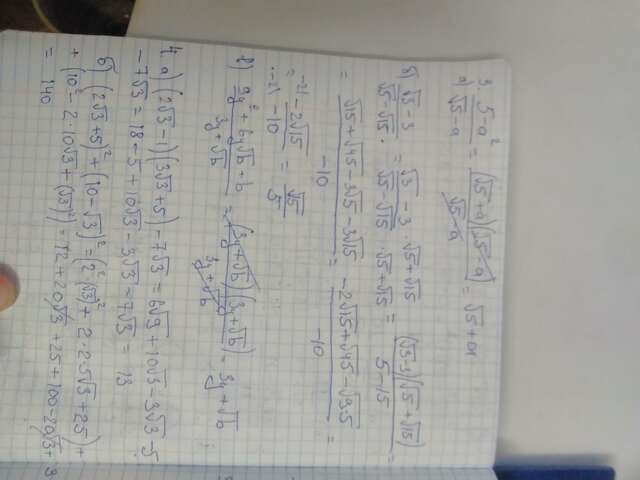 3.
а) 5-a² / √5-a = (√5+a)(√5-a) / √5-a = √5+a
б) √3-3 / √5-√15 = √3-3 / √5-√15 · √5+√15 / √5+√15 = (√3-3)(√5+√15) / 5-15 =
= √15+√45-3√5-3√15 / -10 = -2√15+√45-√3.5 / -10 =
= -2√15 / -10 = √15 / 5
в) 9y²+6y√b+b / 3y+√b = (3y+√b)(3y+√b) / 3y+√b = 3y+√b
4. а) (2√3-1)(3√3+5)-7√3=6√9+10√3-3√3-5
-7√3=18-5+10√3-3√3-7√3=13
б) (2√3+5)²+(10-√3)²=(2²·√3)²+2·2·5√3+25)+
+(10²-2·10√3+(√3)²)=12+20√3+25+100-20√3+3
= 140